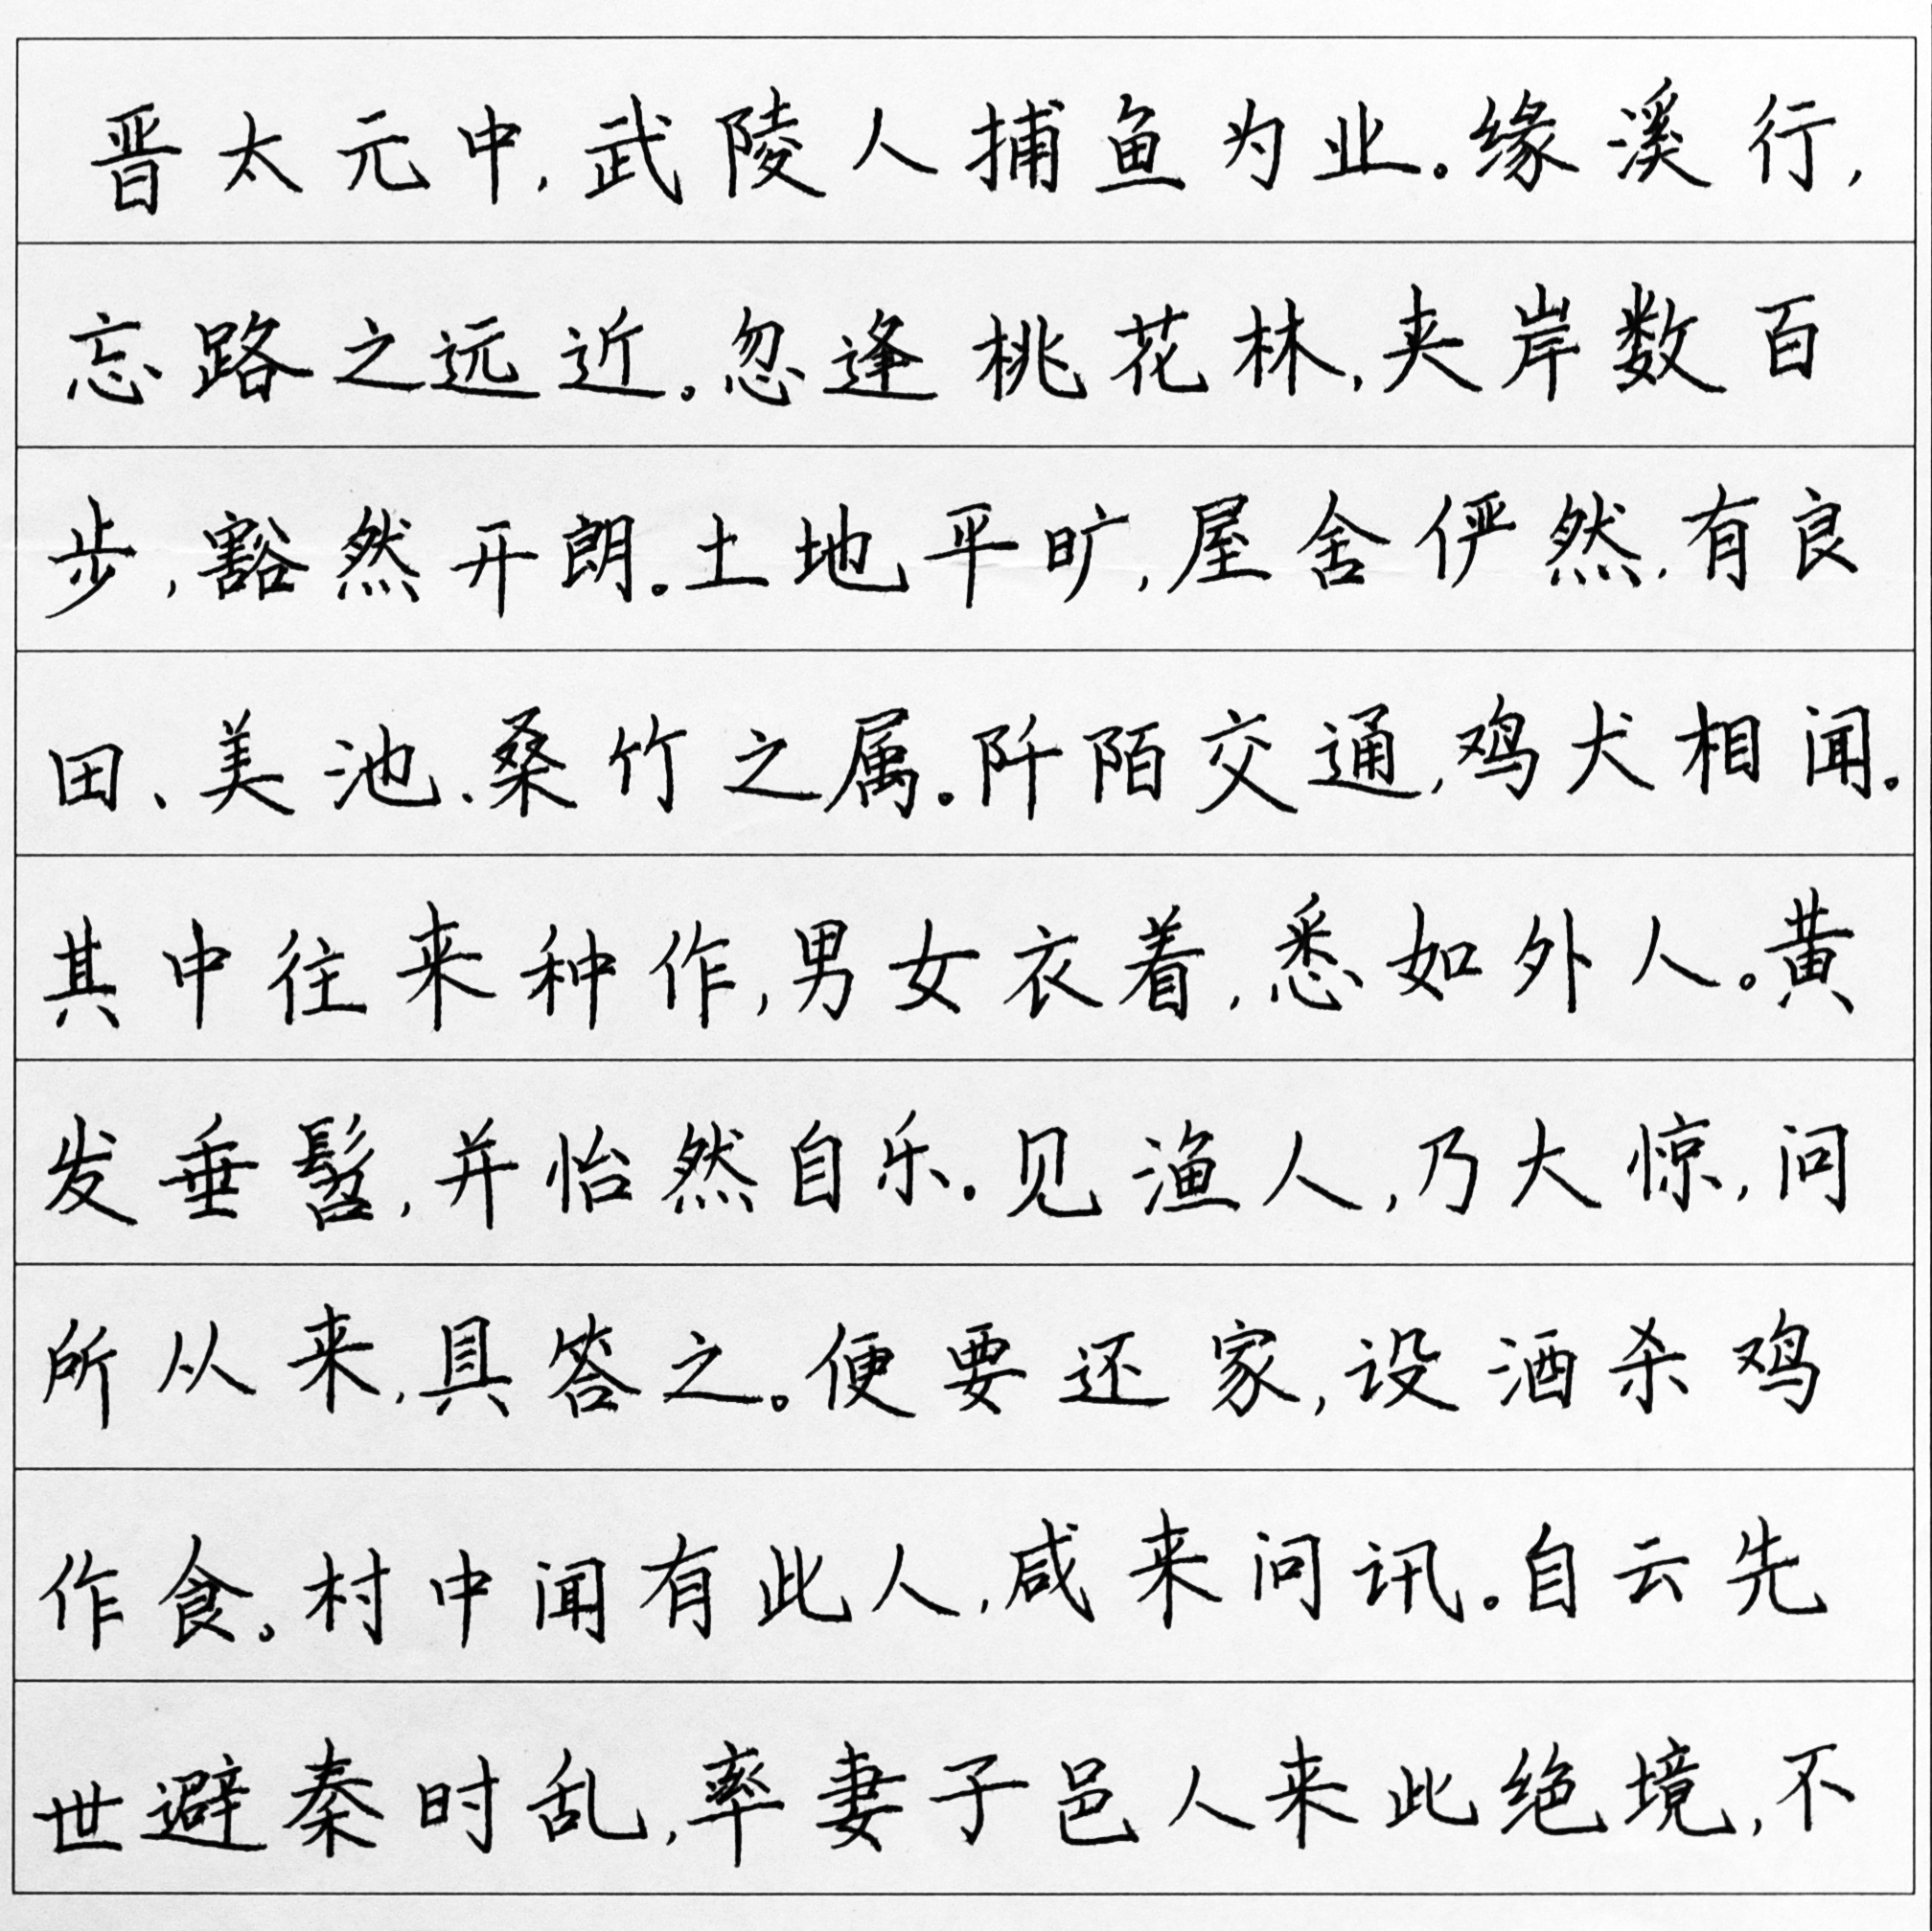 晋太元中,武陵人捕鱼为业。缘溪行,
忘路之远近。忽逢桃花林,夹岸数百
步,豁然开朗。土地平旷,屋舍俨然,有良
田、美池、桑竹之属。阡陌交通,鸡犬相闻。
其中往来种作,男女衣着,悉如外人。黄
发垂髫,并怡然自乐。见渔人,乃大惊,问
所从来,具答之。便要还家,设酒杀鸡
作食。村中闻有此人,咸来问讯。自云先
世避秦时乱,率妻子邑人来此绝境,不